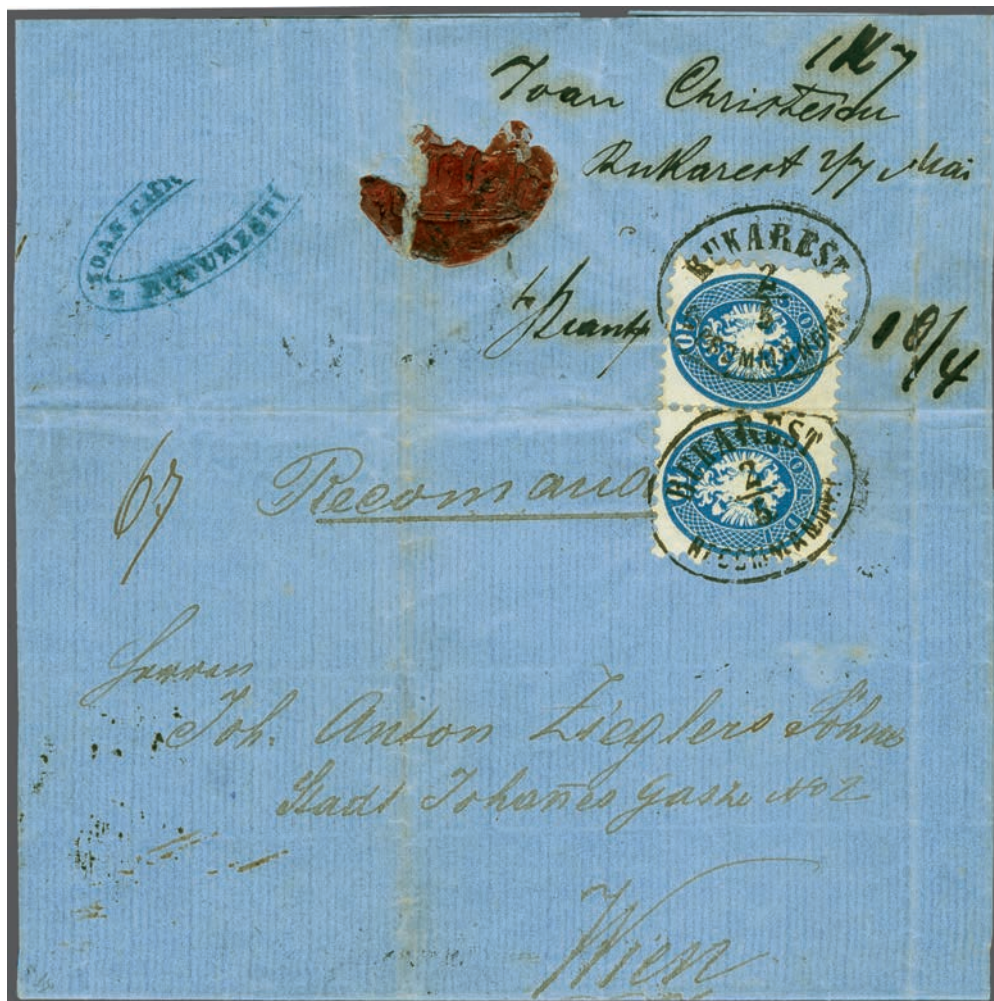 Ioan Christescu
Bukarest 2/7 Mai
IOAN CHR
BUCURESTI
BUKAREST
2
5
RECOMMANDIRT
18/4
67 Recomand
BUKAREST
2
5
RECOMMANDIRT
Herren
Joh. Anton Zieglers Söhne
Stadt Johan̄es Gasse No 2
Wien